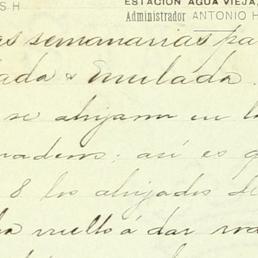 S.H
ESTACIÓN AGUA VIEJA,
Administrador ANTONIO H
as semanarias pa
lada & Emulada.
se ahijam en la
naderos: así es q
8 los ahijados de
ha vuelto á dar